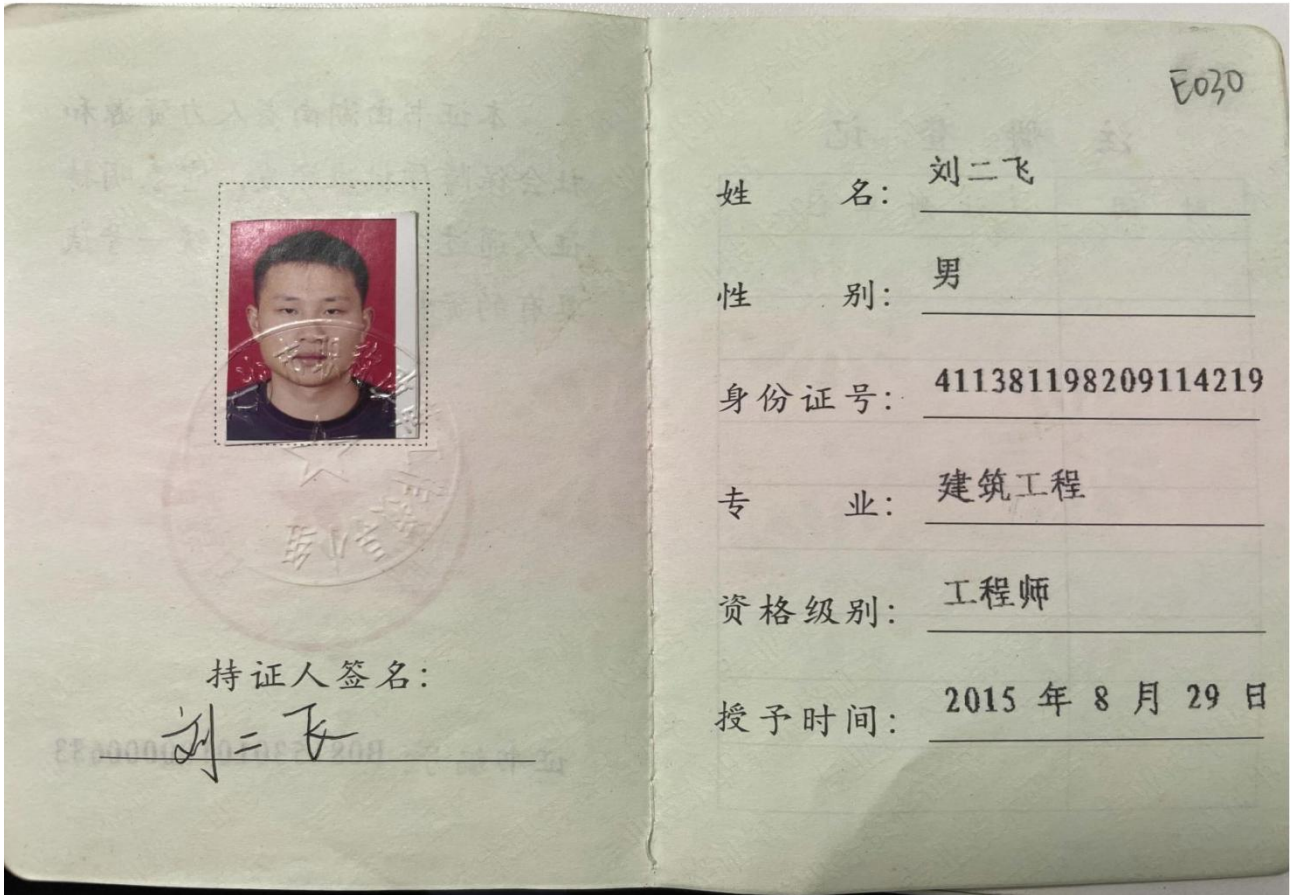 持证人签名:
刘二飞
E030
姓 名: 刘二飞
性 别: 男
身份证号: 411381198209114219
专 业: 建筑工程
资格级别: 工程师
授予时间: 2015 年 8 月 29 日